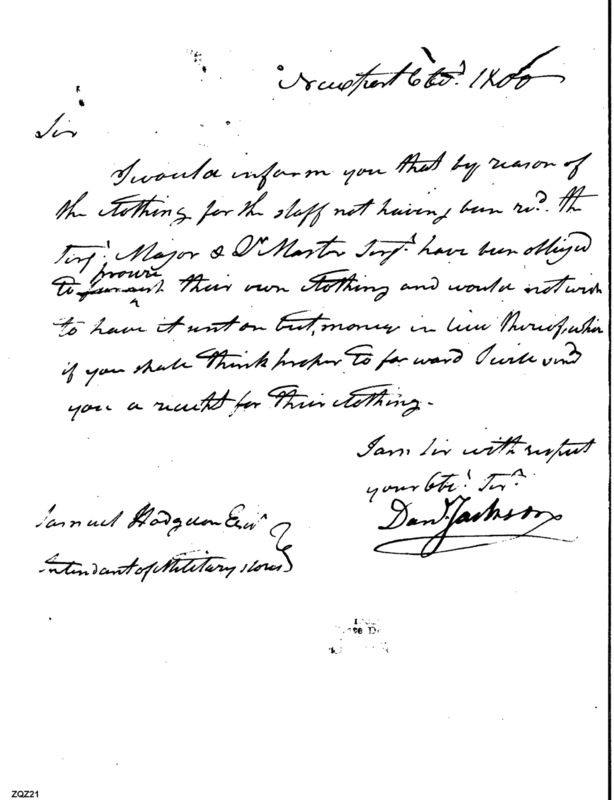 Newport Octr. 1800
Sir
I would inform you that by reason of
the clothing for the staff not having been recd. the
Serjt. Major & Qr Master Serjt. have been obliged
procure
to furnish their own clothing and would not wish
to have it sent on but, money in lieu thereof, which
if you shall think proper to forward I will send
you a receipt for their clothing.
I am Sir with respect
your Obt. Sert.
Danl. Jackson
Samuel Hodgdon Esqr
Intendant of Military stores
ZQZ21